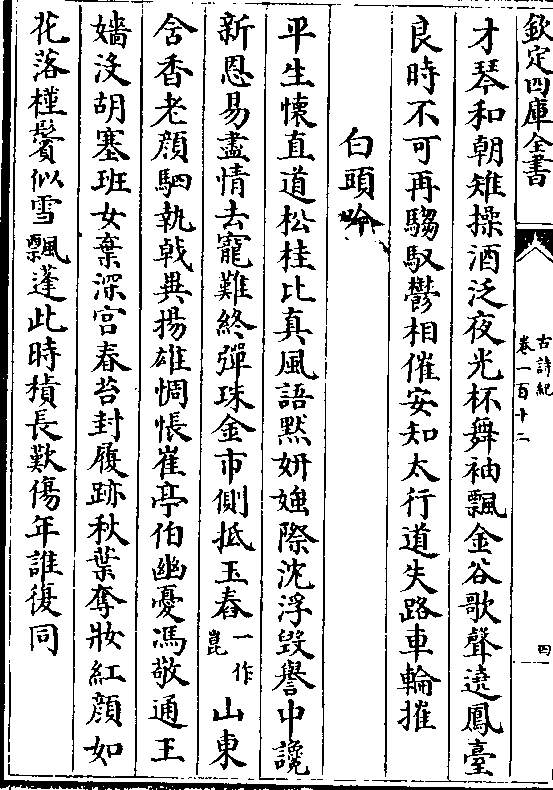 欽定四庫全書
古詩紀
卷一百十二
四
才琴和朝雉操酒泛夜光杯舞袖飄金谷歌聲遶鳳臺
良時不可再騶馭鬱相催安知太行道失路車輪摧
白頭吟
平生懷直道松桂比真風語默妍媸際沈浮毀譽中讒
新恩易盡情去寵難終彈珠金市側抵玉舂一作崑山東
含香老顔駟執戟異揚雄惆悵崔亭伯幽憂馮敬通王
嬙没胡塞班女棄深宫春苔封履跡秋葉奪妝紅顔如
花落槿鬢似雪飄蓬此時積長歎傷年誰復同